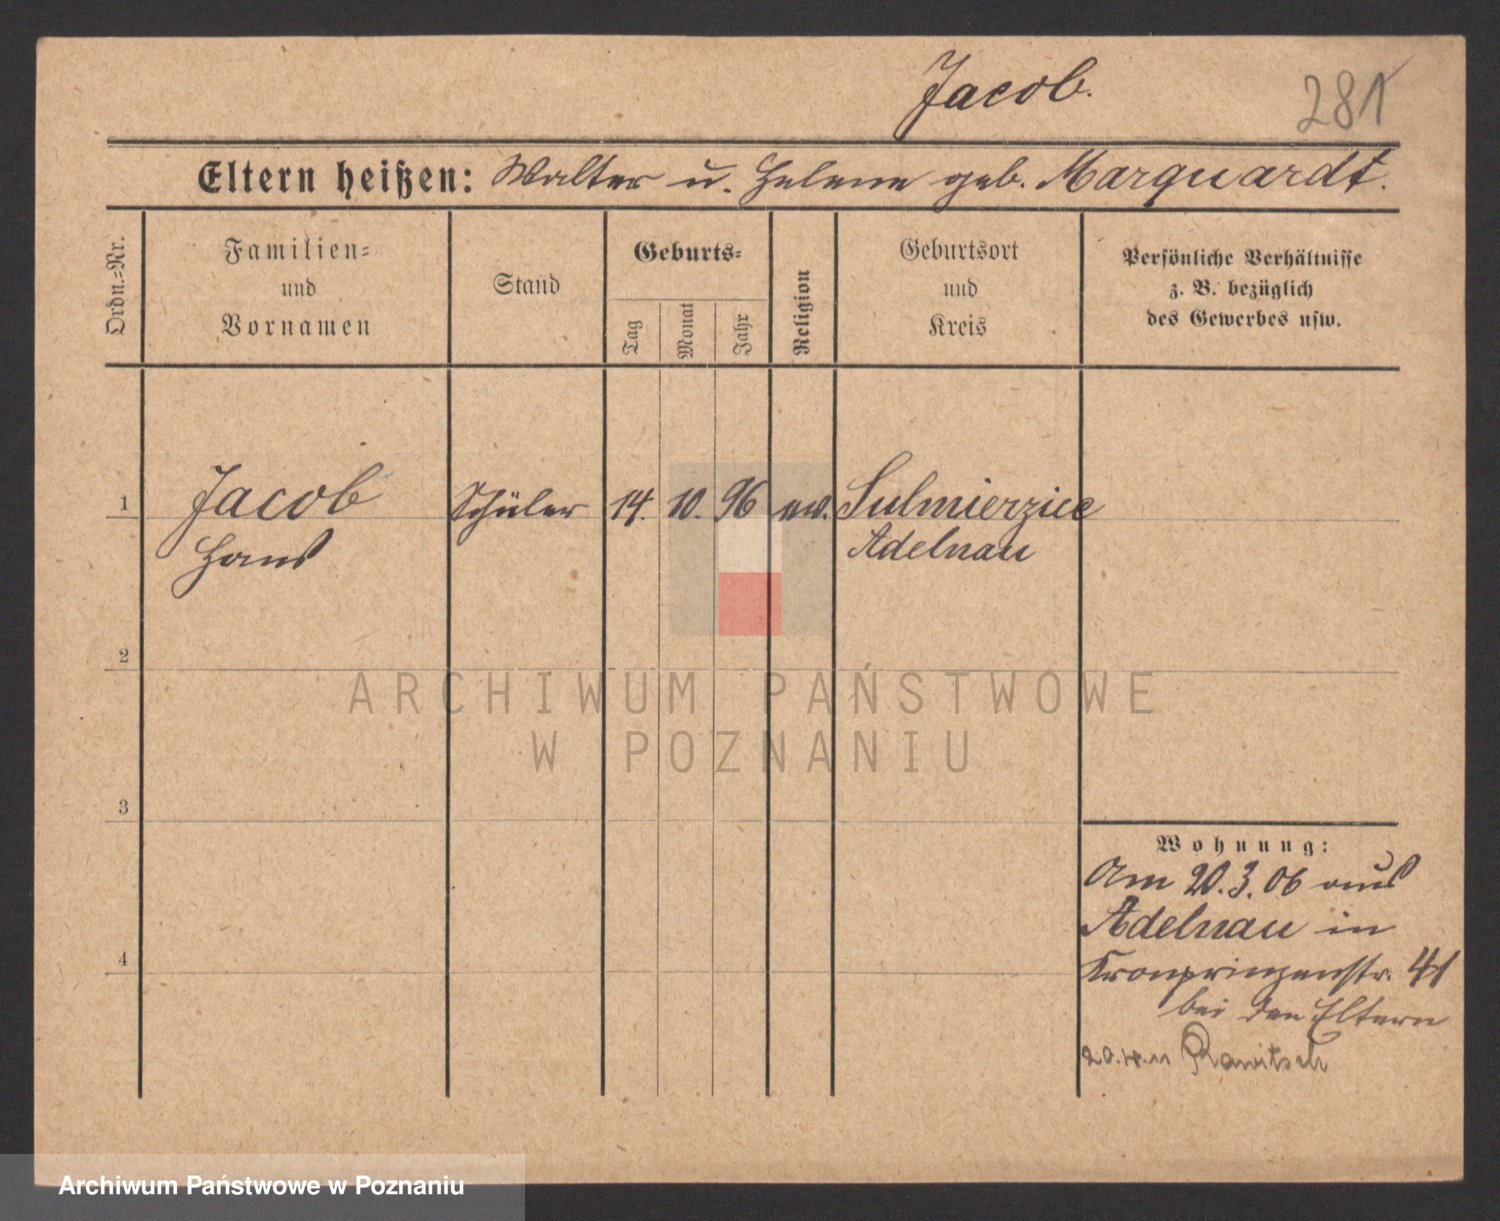 Jacob.
281
Eltern heißen: Walter u. Helene geb. Marquardt.
Ordn.=Nr.
Familien=
und
Vornamen
Stand
Geburts=
Tag
Monat
Jahr
Religion
Geburtsort
und
Kreis
Persönliche Verhältnisse
z. B. bezüglich
des Gewerbes usw.
1 Jacob Schüler 14. 10. 96 ev. Sulmierzice
Hans Adelnau
2
ARCHIWUM PAŃSTWOWE
W POZNANIU
3
Wohnung:
Am 20.3.06 aus
Adelnau in
4 Kronprinzenstr. 41
bei den Eltern
20.4.11 Rawitsch
Archiwum Państwowe w Poznaniu